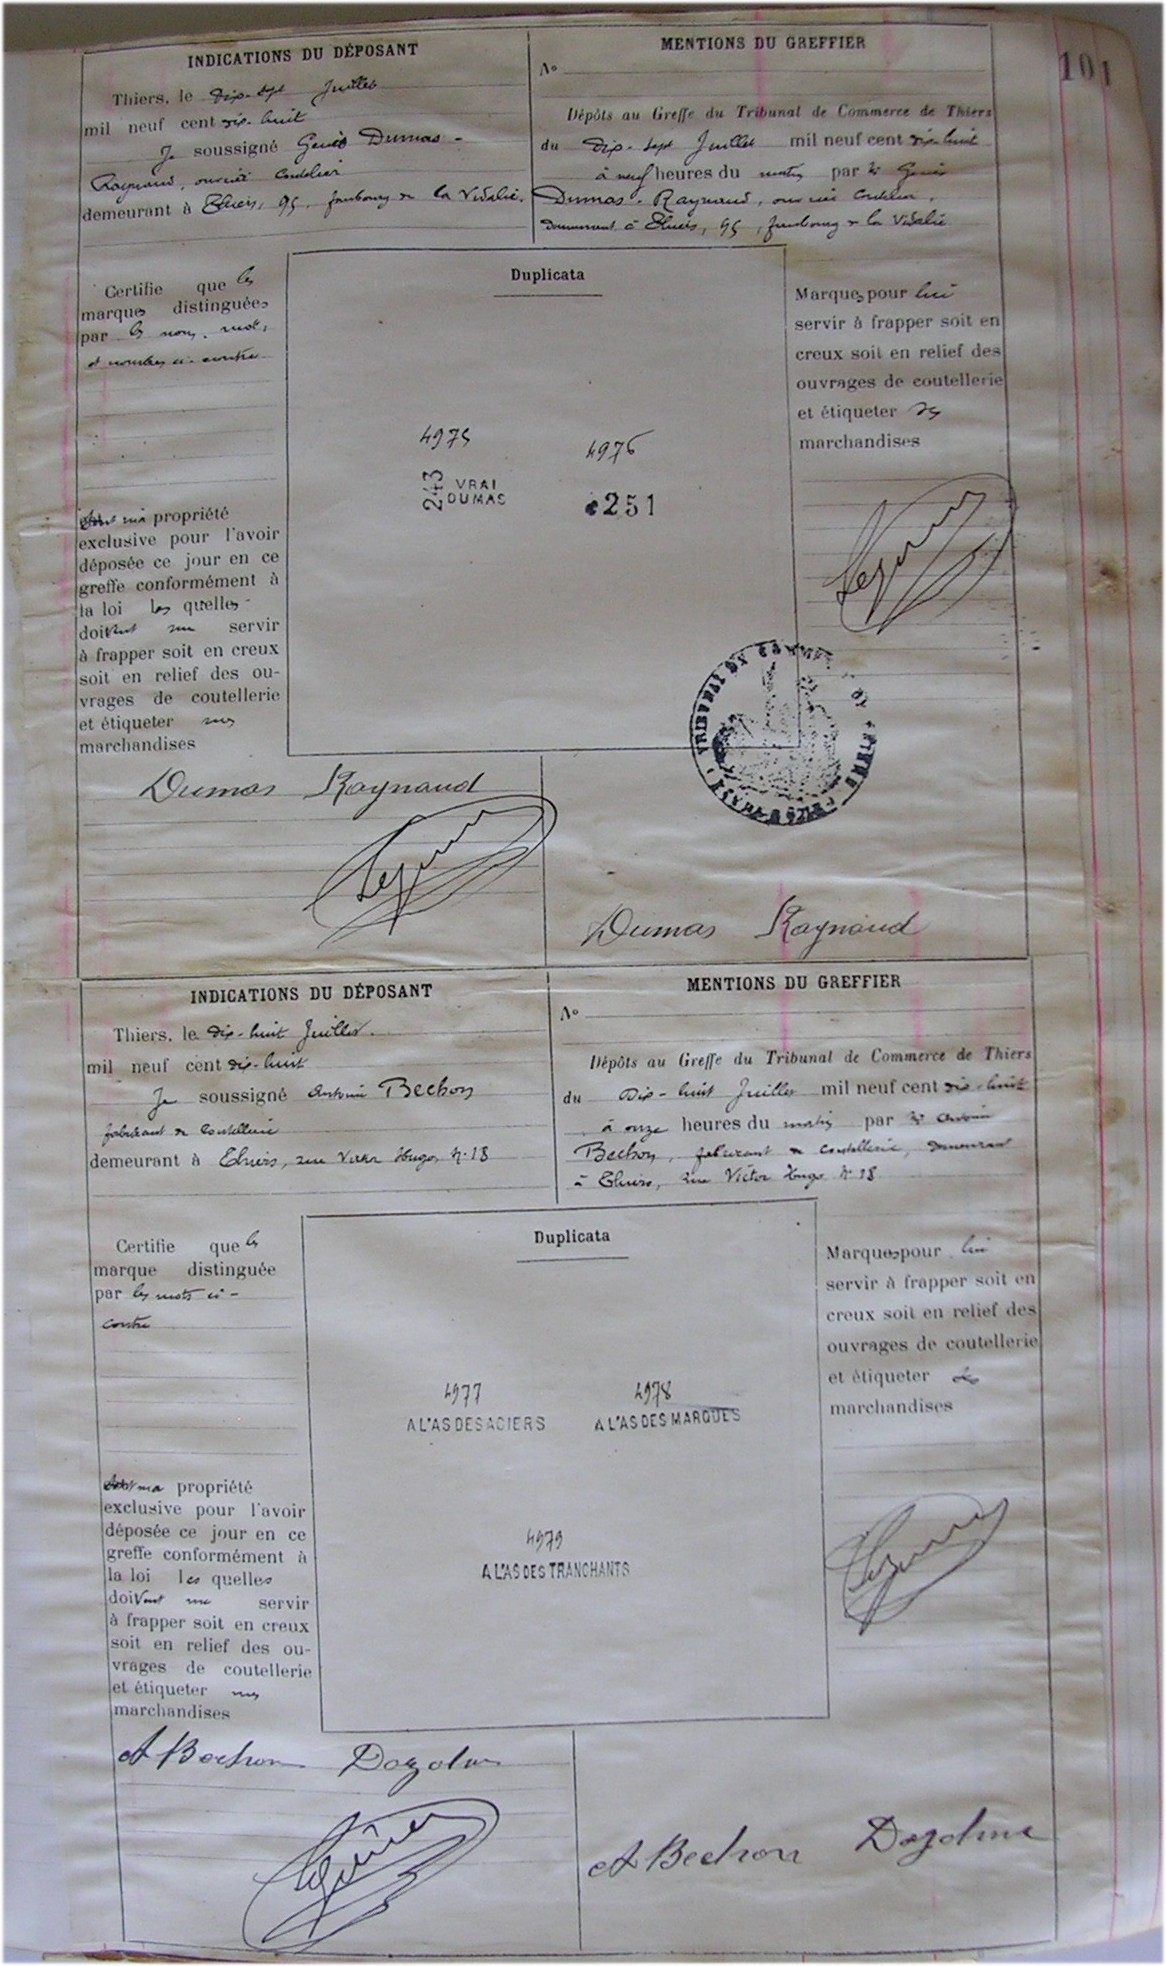 101
INDICATIONS DU DÉPOSANT
Thiers, le dix-sept Juillet
mil neuf cent dix-huit
Je soussigné Genès Dumas-
Raynaud, ouvrier coutelier
demeurant à Thiers, 95, faubourg de la Vidalie.
MENTIONS DU GREFFIER
No
Dépôts au Greffe du Tribunal de Commerce de Thiers
du Dix-sept Juillet mil neuf cent dix-huit
à neuf heures du matin par Mr Genès
Dumas-Raynaud, ouvrier coutelier,
demeurant à Thiers, 95, faubourg de la Vidalie
Certifie que les
marques distinguées
par les noms, mots,
et nombres ci-contre
propriété
exclusive pour l'avoir
déposée ce jour en ce
greffe conformément à
la loi les quelles
doivent me servir
à frapper soit en creux
soit en relief des ou-
vrages de coutellerie
et étiqueter mes
marchandises
Duplicata
4975
4976
243 VRAI
DUMAS
251
Marques pour lui
servir à frapper soit en
creux soit en relief des
ouvrages de coutellerie
et étiqueter ses
marchandises
Dumas Raynaud
Dumas Raynaud
INDICATIONS DU DÉPOSANT
Thiers, le dix-huit Juillet.
mil neuf cent dix-huit
Je soussigné Antoine Bechon
fabricant de coutellerie
demeurant à Thiers, rue Victor Hugo, No 18
MENTIONS DU GREFFIER
No
Dépôts au Greffe du Tribunal de Commerce de Thiers
du Dix-huit Juillet mil neuf cent dix-huit
à onze heures du matin par Mr Antoine
Bechon, fabricant de coutellerie, demeurant
à Thiers, rue Victor Hugo No 18
Certifie que les
marque distinguée
par les mots ci-
contre
ma propriété
exclusive pour l'avoir
déposée ce jour en ce
greffe conformément à
la loi les quelles
doivent me servir
à frapper soit en creux
soit en relief des ou-
vrages de coutellerie
et étiqueter mes
marchandises
Duplicata
4977
4978
A L'AS DES ACIERS
A L'AS DES MARQUES
4979
A L'AS DES TRANCHANTS
Marques pour lui
servir à frapper soit en
creux soit en relief des
ouvrages de coutellerie
et étiqueter
marchandises
A Bechon Dozolme
A Bechon Dozolme